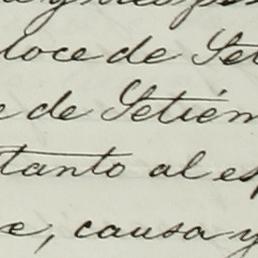 loce de Set
e de Setiém
tanto al es
e, causa y